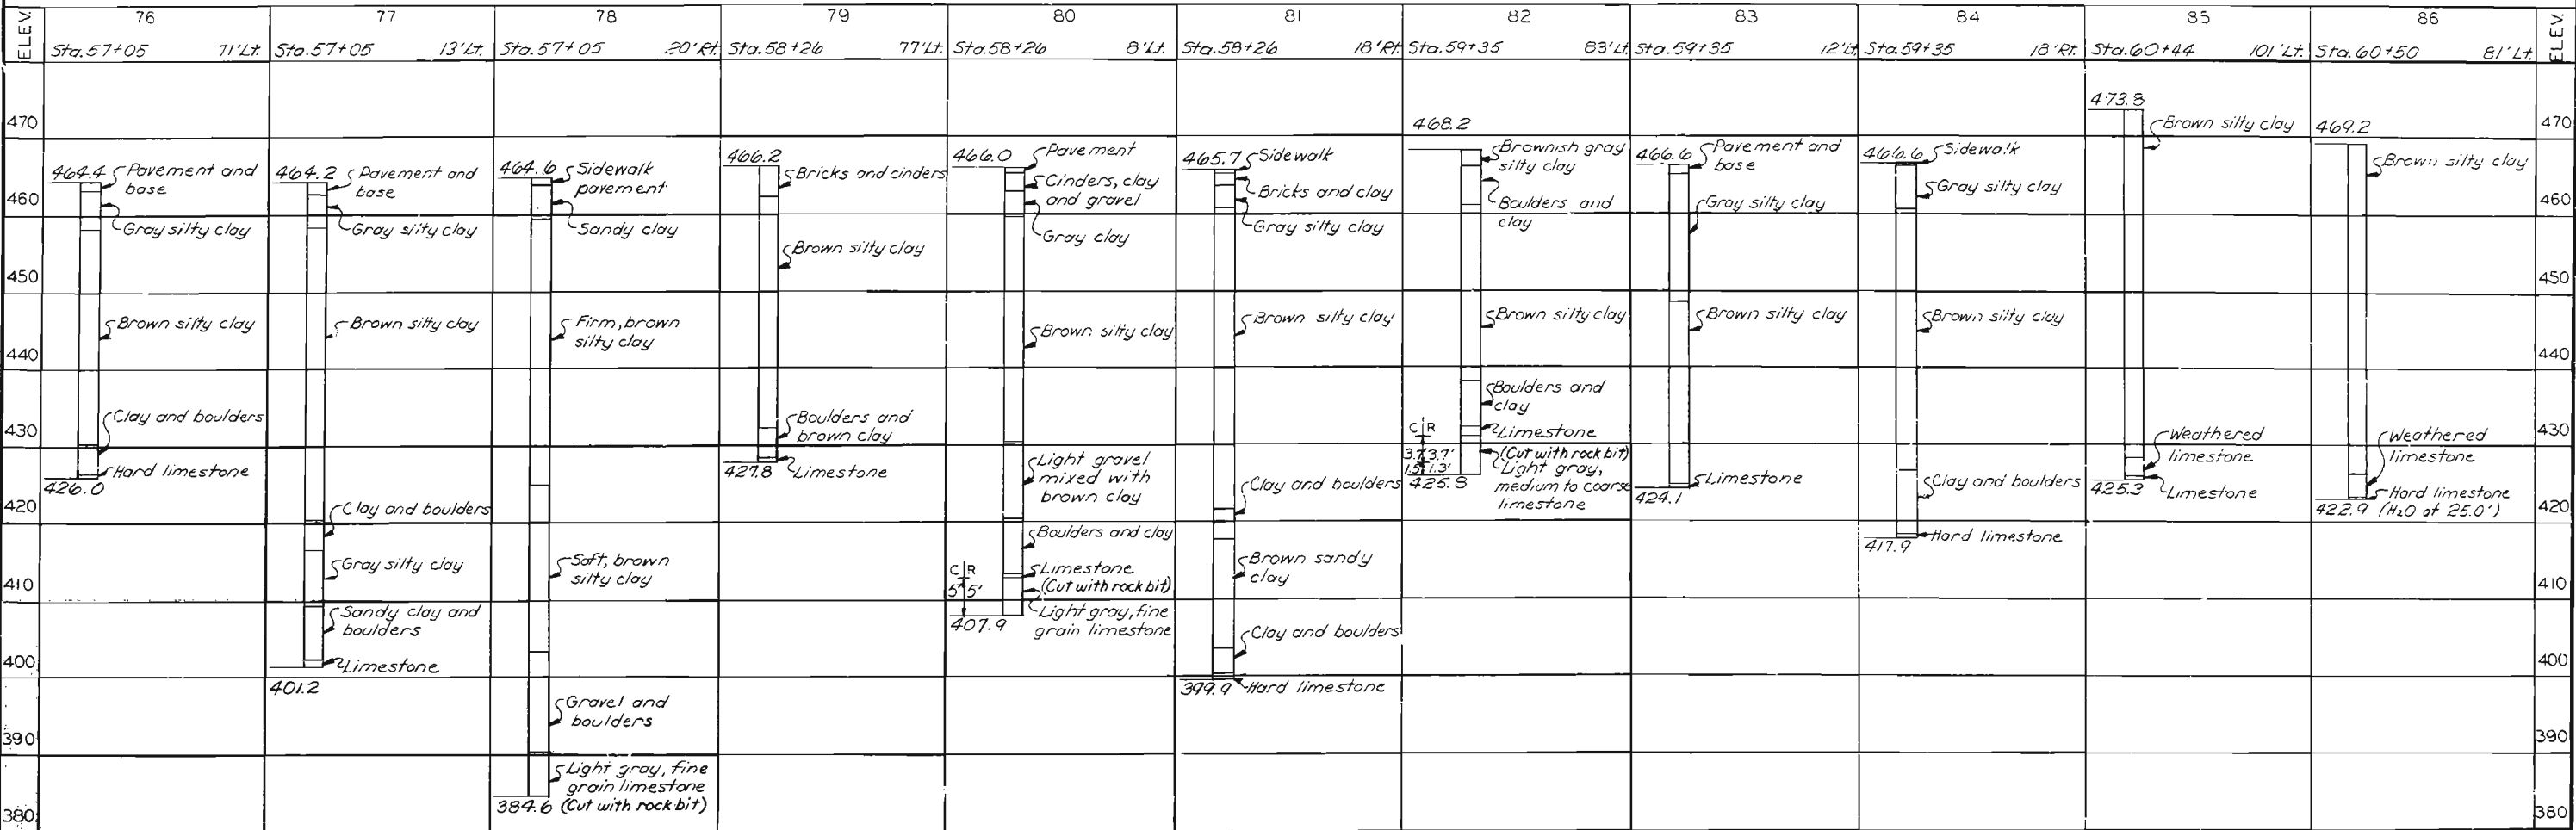 ELEV.
76
Sta.57+05 71'Lt.
464.4
Pavement and
base
Gray silty clay
Brown silty clay
Clay and boulders
Hard limestone
426.0
77
Sta.57+05 13'Lt.
464.2
Pavement and
base
Gray silty clay
Brown silty clay
Clay and boulders
Gray silty clay
Sandy clay and
boulders
Limestone
401.2
78
Sta.57+05 20'Rt.
464.6
Sidewalk
pavement
Sandy clay
Firm, brown
silty clay
Soft, brown
silty clay
Gravel and
boulders
Light gray, fine
grain limestone
384.6 (Cut with rock bit)
79
Sta.58+26 77'Lt.
466.2
Bricks and cinders
Brown silty clay
Boulders and
brown clay
427.8 Limestone
80
Sta.58+26 8'Lt.
466.0
Pavement
Cinders, clay
and gravel
Gray clay
Brown silty clay
Light gravel
mixed with
brown clay
Boulders and clay
C R
Limestone
5' 5' (Cut with rock bit)
Light gray, fine
grain limestone
407.9
81
Sta.58+26 18'Rt
465.7 Sidewalk
Bricks and clay
Gray silty clay
Brown silty clay
Clay and boulders
Brown sandy
clay
Clay and boulders
399.9 Hard limestone
82
Sta.59+35 83'Lt
468.2
Brownish gray
silty clay
Boulders and
clay
Brown silty clay
Boulders and
clay
C R
Limestone
3.7' 3.7' (Cut with rock bit)
1.5' 1.3' Light gray,
425.8 medium to coarse
limestone
83
Sta.59+35 12'Lt
466.6
Pavement and
base
Gray silty clay
Brown silty clay
Limestone
424.1
84
Sta.59+35 18'Rt.
466.6 Sidewalk
Gray silty clay
Brown silty clay
Clay and boulders
417.9 Hard limestone
85
Sta.60+44 101'Lt.
473.8
Brown silty clay
Weathered
limestone
425.3 Limestone
86
Sta.60+50 81'Lt.
469.2
Brown silty clay
Weathered
limestone
Hard limestone
422.9 (H2O at 25.0')
ELEV.
470 470
460 460
450 450
440 440
430 430
420 420
410 410
400 400
390 390
380 380